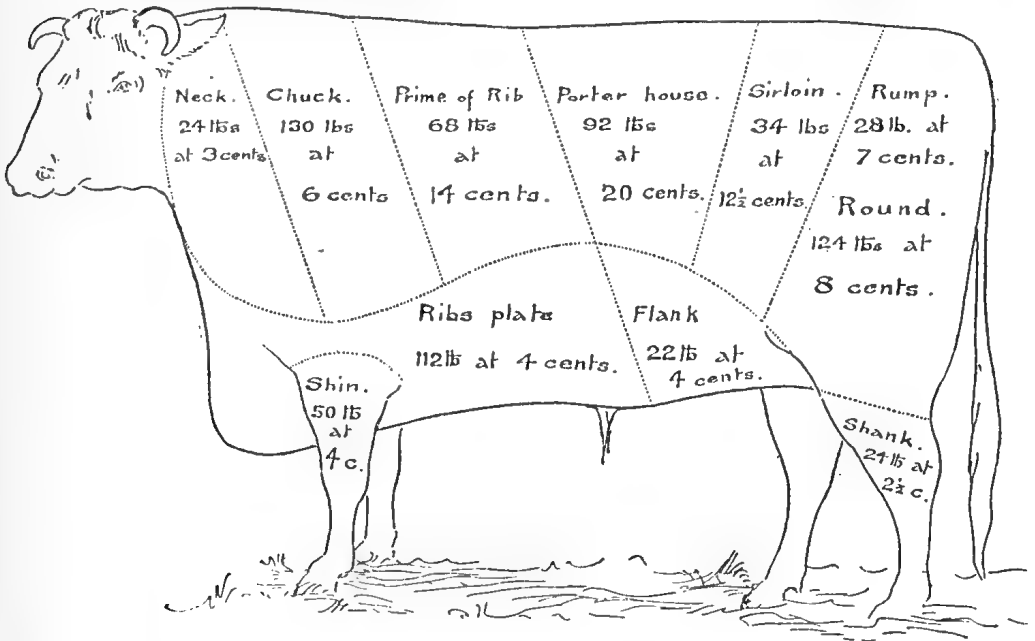 Neck.
24 lbs
at 3 cents
Chuck.
130 lbs
at
6 cents
Prime of Rib
68 lbs
at
14 cents.
Porter house.
92 lbs
at
20 cents.
Sirloin.
34 lbs
at
12½ cents
Rump.
28 lb. at
7 cents.
Round.
124 lbs at
8 cents.
Ribs plate
112 lb at 4 cents.
Flank
22 lb at
4 cents.
Shin.
50 lb
at
4 c.
Shank.
24 lb at
2½ c.